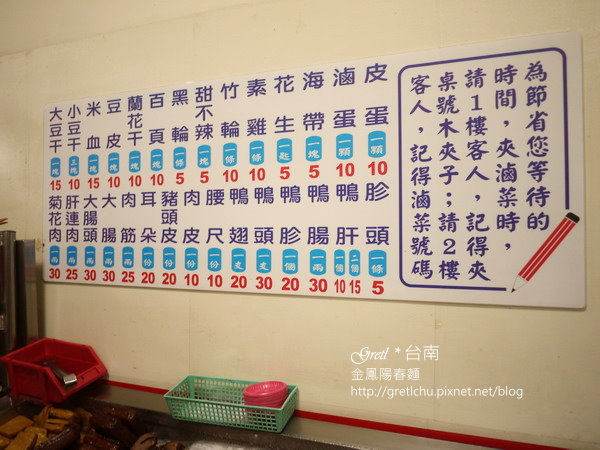 為節省您等待的
時間，夾滷菜時，
請1樓客人，記得夾
桌號木夾子；請2樓
客人，記得滷菜號碼
皮蛋 一顆 10
滷蛋 一顆 10
海帶 一塊 5
花生 一匙 5
素雞 一條 10
竹輪 一條 10
甜不辣 一塊 5
黑輪 一塊 5
百頁 一塊 10
蘭花干 一塊 10
豆皮 一塊 10
米血 一塊 15
小豆干 三塊 10
大豆干 一塊 15
胗頭 一條 5
鴨肝 一個 10 二個 15
鴨腸 一兩 30
鴨胗 一個 20
鴨頭 一支 30
鴨翅 一支 20
腰尺 一份 20
肉皮 一份 10
豬頭皮 一份 20
耳朵 一份 20
肉筋 一兩 25
大腸 一兩 30
大腸頭 一兩 30
肝連肉 一兩 25
菊花肉 一兩 30
Gretl * 台南
金鳳陽春麵
http://gretlchu.pixnet.net/blog